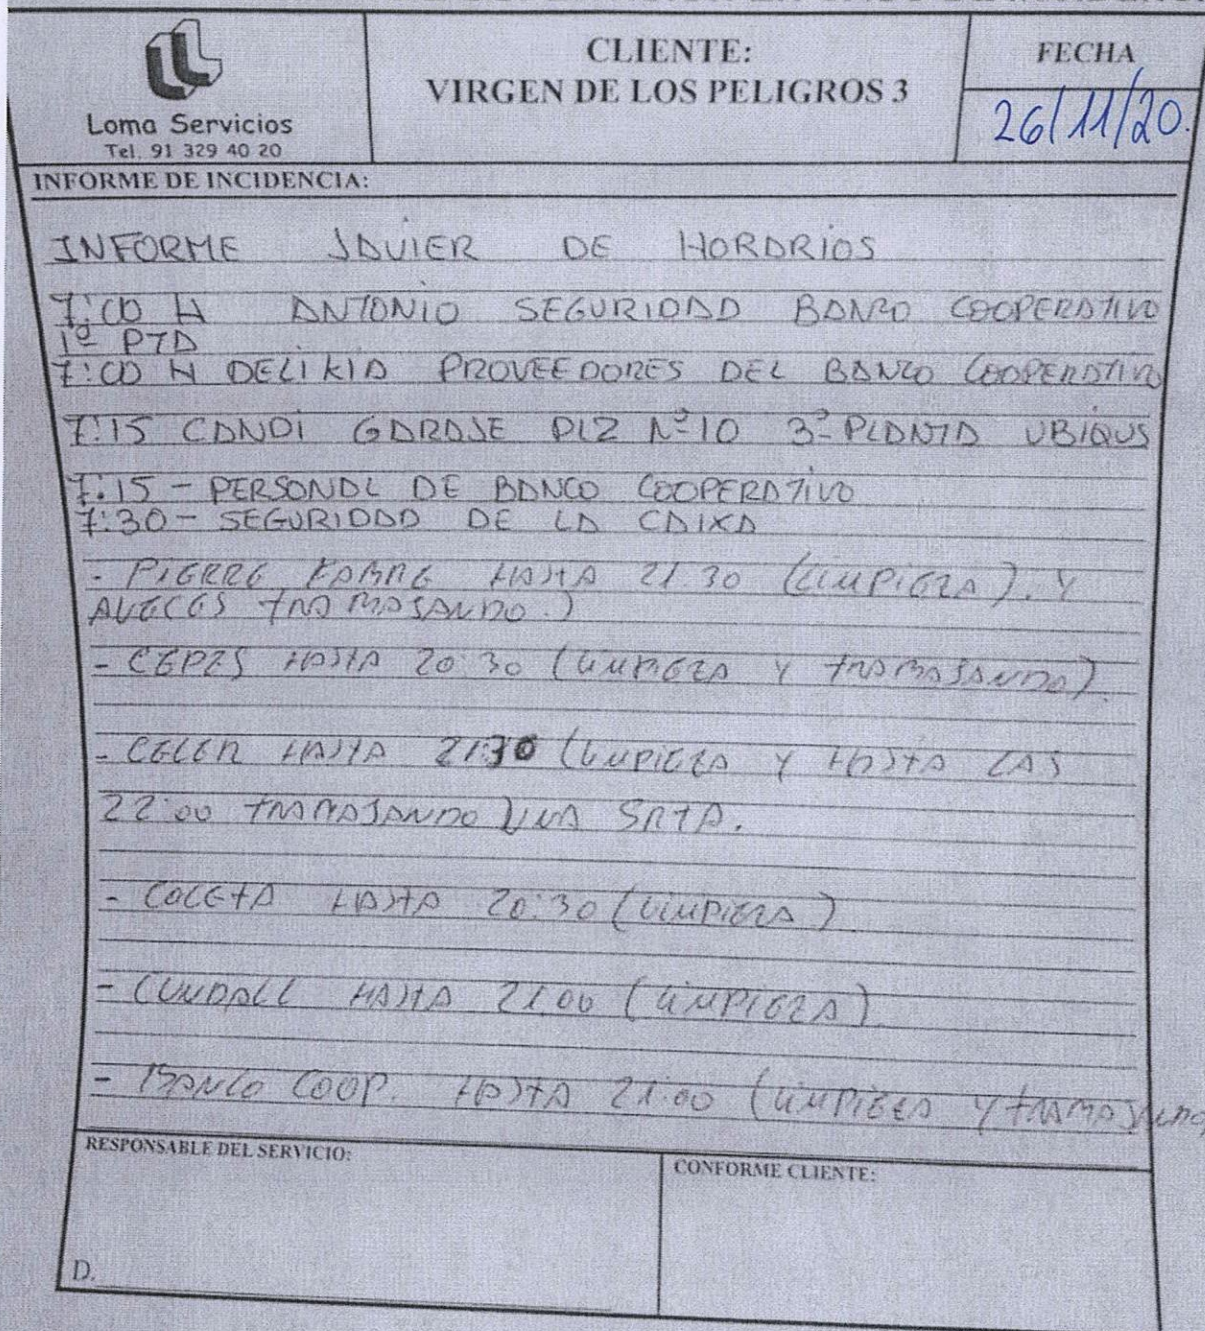 Loma Servicios
Tel. 91 329 40 20
CLIENTE:
VIRGEN DE LOS PELIGROS 3
FECHA
26/11/20.
INFORME DE INCIDENCIA:
INFORME JAVIER DE HORARIOS
7:00 H ANTONIO SEGURIDAD BANCO COOPERATIVO
1ª PTA
7:00 H DELIKIA PROVEEDORES DEL BANCO COOPERATIVO
7:15 CANDI GARAJE PLZ Nº 10 3ª PLANTA UBIQUS
7:15 - PERSONAL DE BANCO COOPERATIVO
7:30 - SEGURIDAD DE LA CAIXA
- PIERRE FABRE HASTA 21:30 (LIMPIEZA). Y
AVECES TRABAJANDO.)
- CEPES HASTA 20:30 (LIMPIEZA Y TRABAJANDO).
- CELER HASTA 21:30 (LIMPIEZA Y HASTA LAS
22:00 TRABAJANDO UNA SRTA.
- COLETA HASTA 20:30 (LIMPIEZA)
- CUNDALL HASTA 21:00 (LIMPIEZA)
- BANCO COOP. HASTA 21:00 (LIMPIEZA Y TRABAJANDO
RESPONSABLE DEL SERVICIO:
CONFORME CLIENTE:
D.